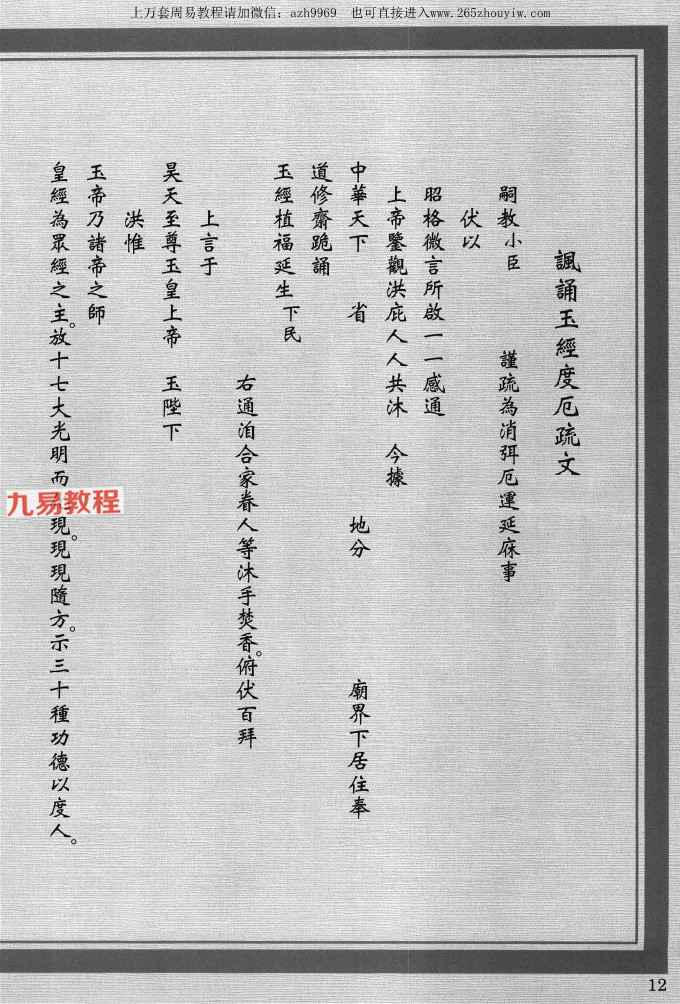 上万套周易教程请加微信：azh9969　也可直接进入www.265zhouyiw.com
諷誦玉經度厄疏文
嗣教小臣　　　謹疏為消弭厄運延庥事
伏以
昭格微言所啟一一感通
上帝鑒觀洪庇人人共沐　今據
中華天下　　省　　　　　　　　地分　　　　　廟界下居住奉
道修齋跪誦
玉經植福延生下民
右通洎合家眷人等沐手焚香。俯伏百拜
上言于
昊天至尊玉皇上帝　玉陛下
洪惟
玉帝乃諸帝之師
皇經為眾經之主。放十七大光明而現。現現隨方。示三十種功德以度人。
九易教程
12